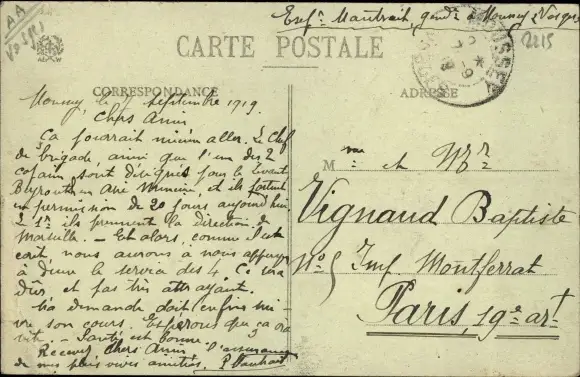 Exp. Mautrait, gend. à Moussey, Vosges
AA
Vosges
2215
CARTE POSTALE
CORRESPONDANCE
ADRESSE
Moussey le 7 septembre 1919.
Chers Amis
Ça pourrait mieux aller. Le Chef
de brigade, ainsi que l'un des 2
copains sont désignés pour le Levant
Beyrouth en Asie Mineure, et ils partent
en permission de 20 jours aujourd'hui
ils prennent la direction de
Marseille. - Et alors, comme il est
écrit, nous aurons à nous appuyer
à deux le service des 4. Ce sera
dur et pas très attrayant.
Ma demande doit enfin sui-
vre son cours. Espérons que ça ira
vite. - Santé est bonne.
Recevez, Chers Amis l'assurance
de nos plus vives amitiés.
Mme et Mr
Vignaud Baptiste
No 5 Imp. Montferrat
Paris, 19e art